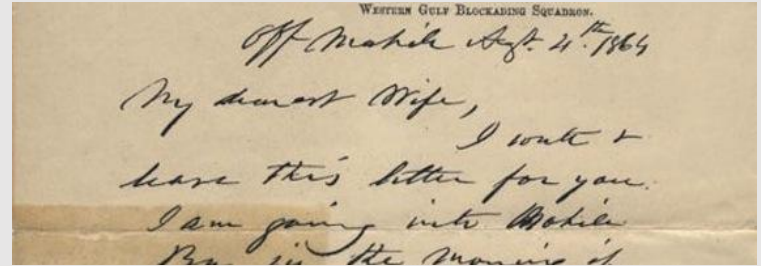 WESTERN GULF BLOCKADING SQUADRON.
Off Mobile Augt. 4th. 1864
My dearest Wife,
I write &
leave this letter for you.
I am going into Mobile
Bay in the morning if